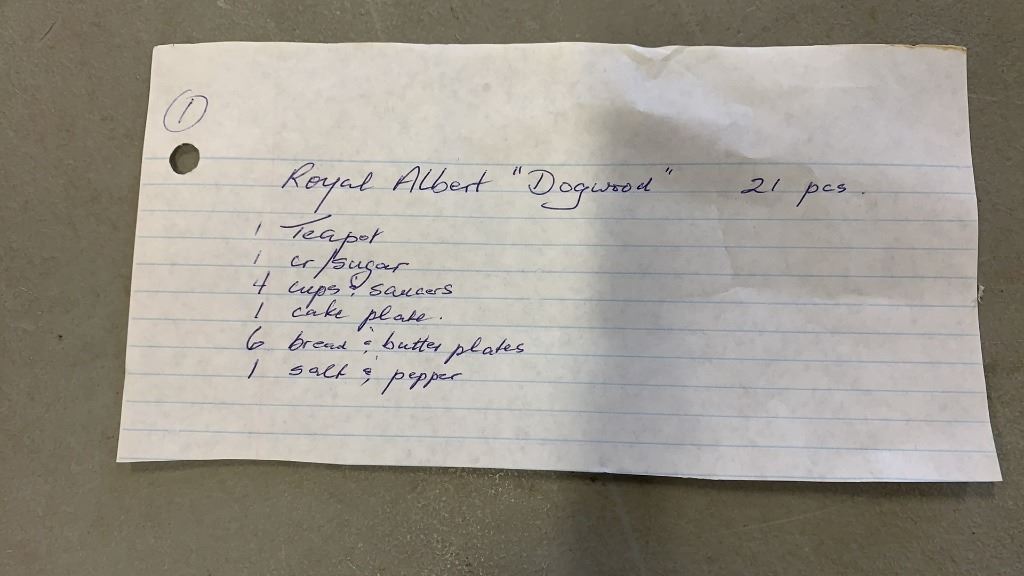 1
Royal Albert "Dogwood" 21 pcs.
1 Teapot
1 cr/sugar
4 cups & saucers
1 cake plate.
6 bread & butter plates
1 salt & pepper